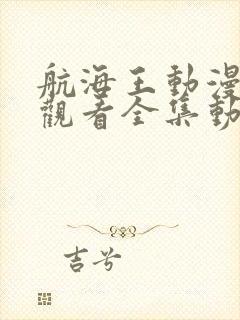 航海王動漫
觀看全集動
吉兮